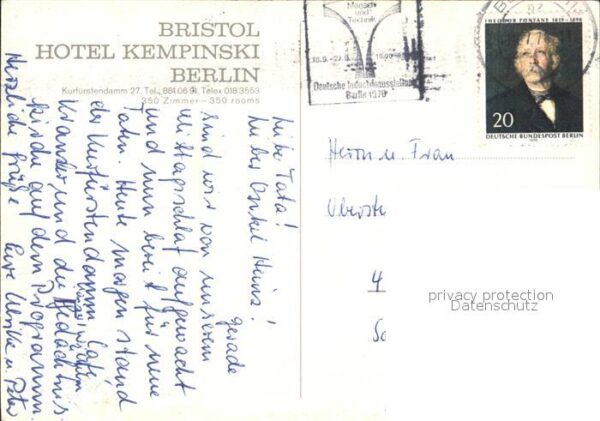 BRISTOL
HOTEL KEMPINSKI
BERLIN
Kurfürstendamm 27. Tel.: 881 06 91. Telex 018 3553
350 Zimmer – 350 rooms
Mensch
und
Technik
Deutsche Industrieausstellung
Berlin 1970
THEODOR FONTANE 1819 - 1898
20
DEUTSCHE BUNDESPOST BERLIN
Liebe Tata!
Lieber Onkel Heinz!
Gerade
sind wir von unserem
Mittagschlaf aufgewacht
und nun bereit für neue
Taten. Heute morgen stand
der Kurfürstendamm, Café
Kranzler und die Gedächtnis-
kirche auf dem Programm.
Herzliche Grüße Eure Ulrike u. Peter
Herrn u. Frau
Oberste
4
privacy protection
Datenschutz